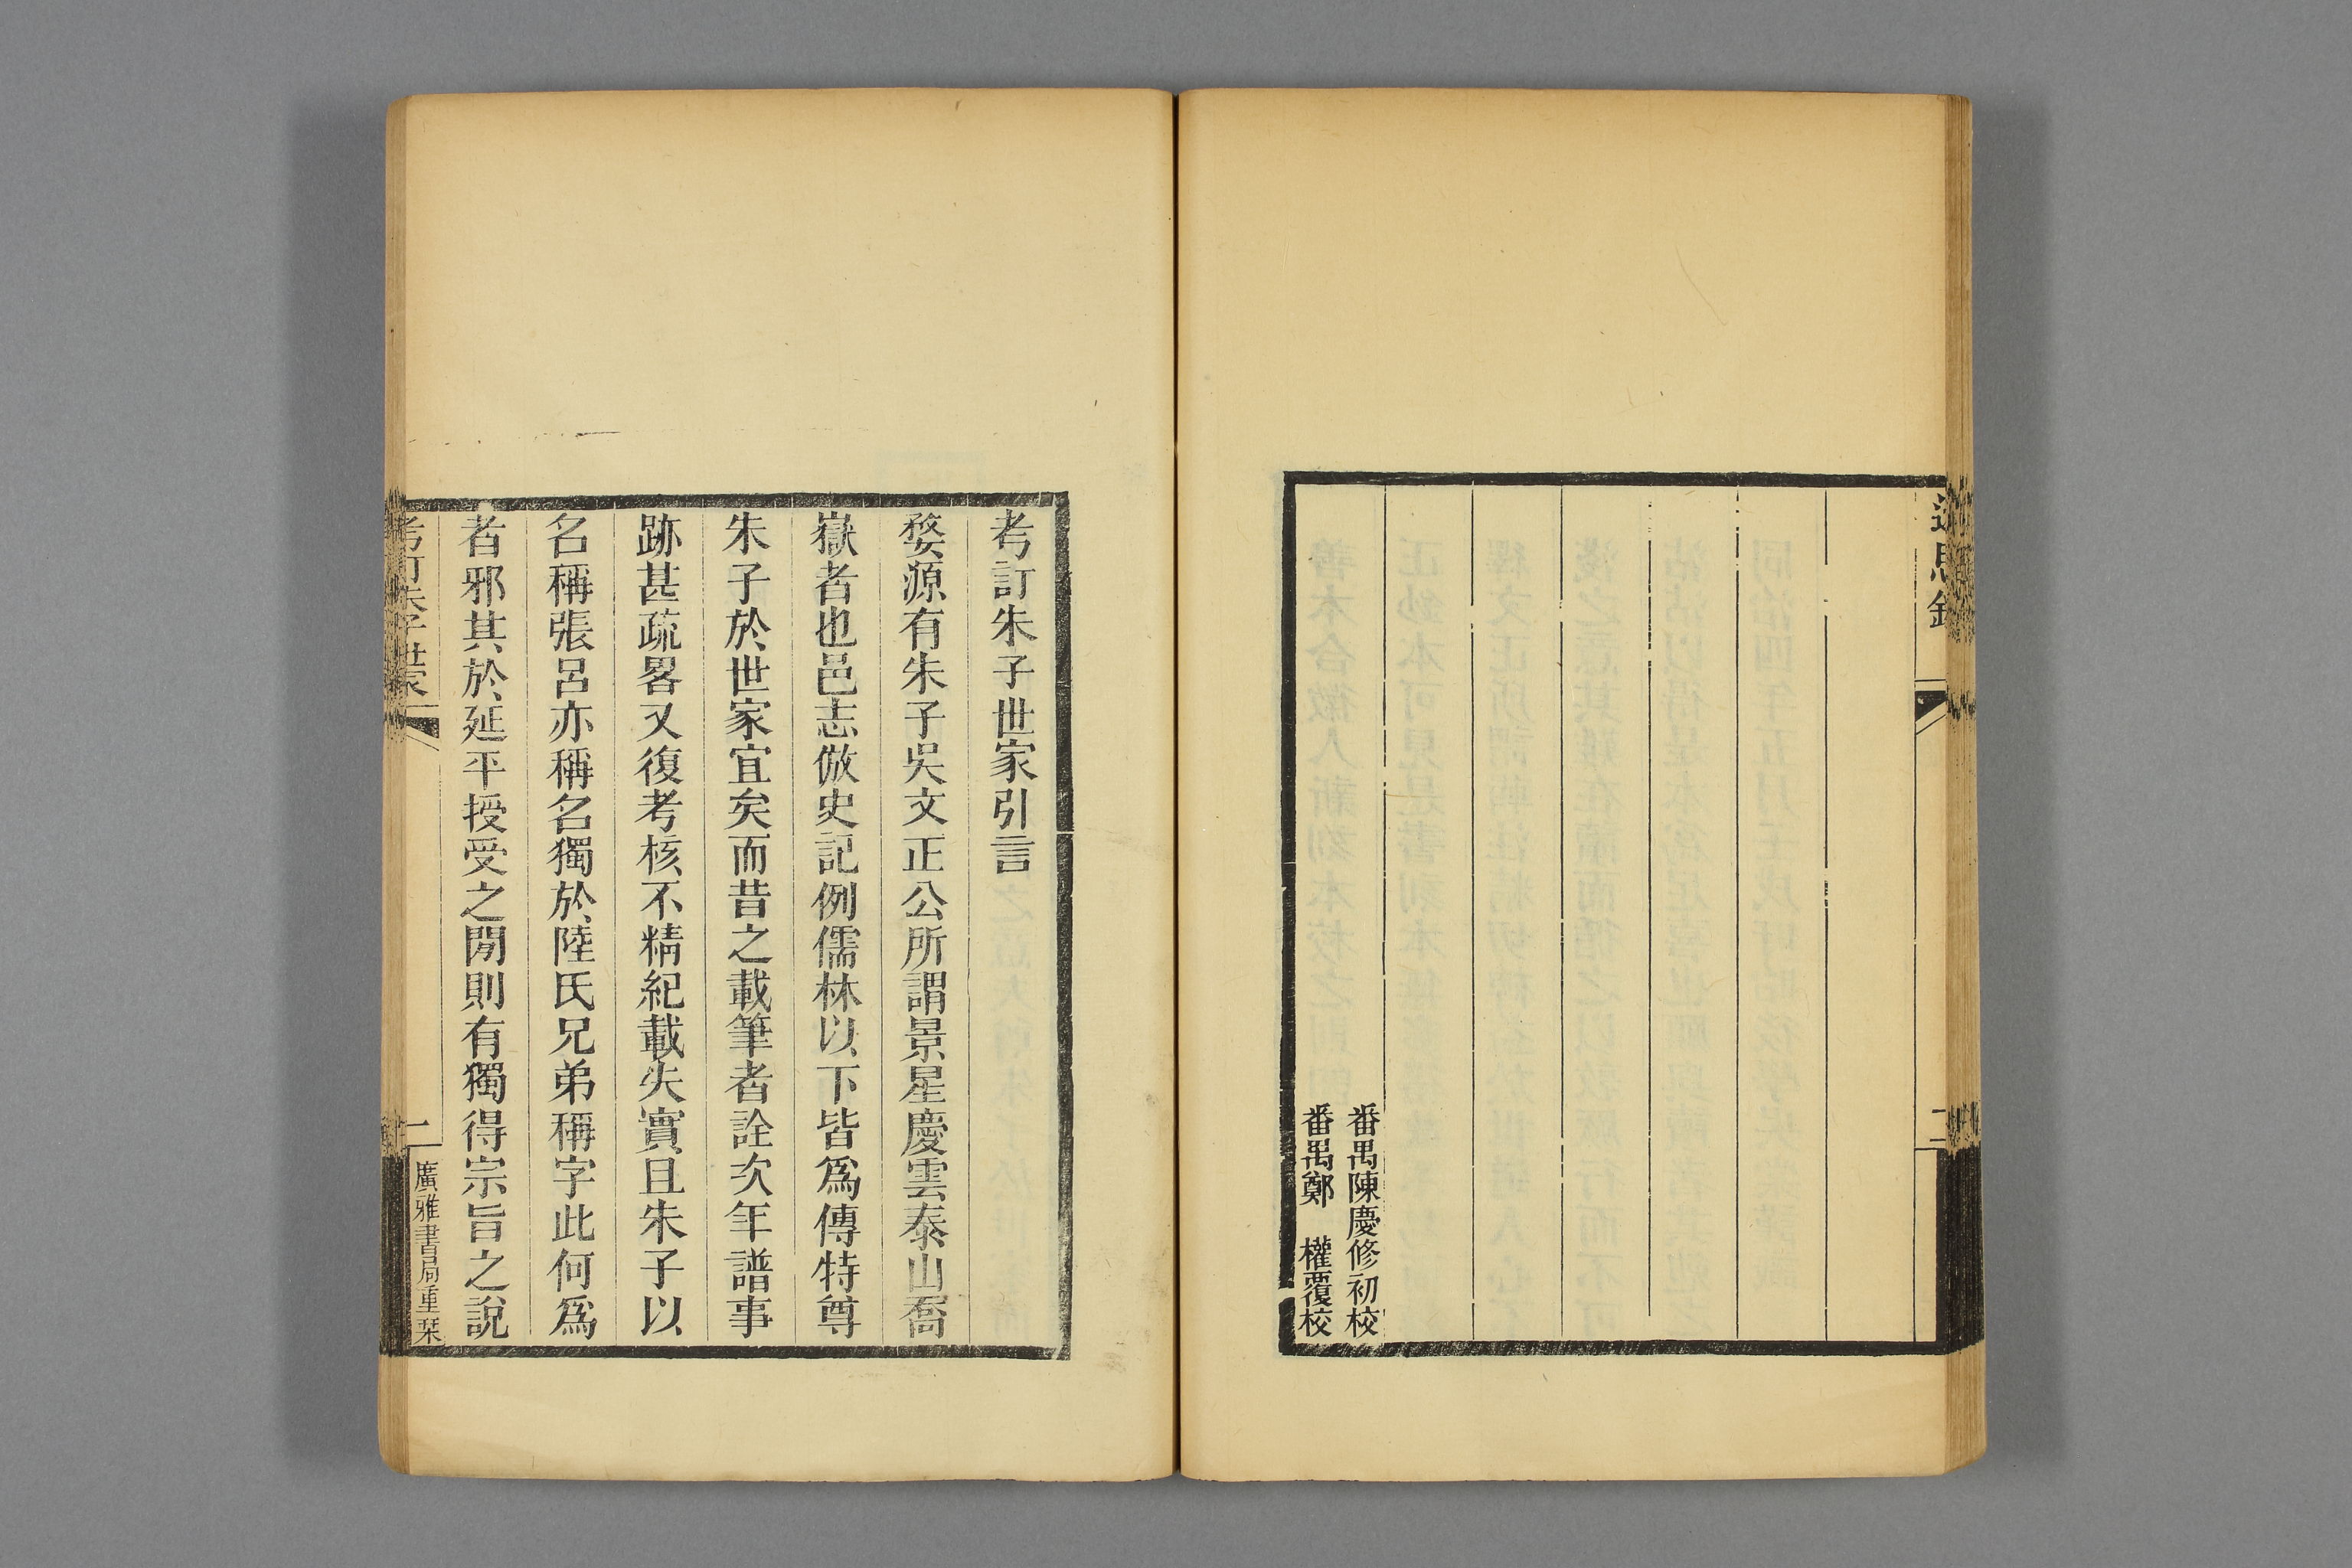 近思錄
二
番禺陳慶修初校
番禺鄭　權覆校
考訂朱子世家引言
婺源有朱子吳文正公所謂景星慶雲泰山喬
嶽者也邑志倣史記例儒林以下皆爲傳特尊
朱子於世家宜矣而昔之載筆者詮次年譜事
跡甚疏畧又復考核不精紀載失實且朱子以
名稱張呂亦稱名獨於陸氏兄弟稱字此何爲
者邪其於延平授受之閒則有獨得宗旨之說
考訂朱子世家
二
廣雅書局重栞